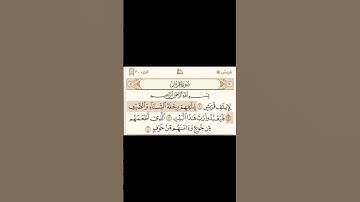 قريش الجزء ٣٠
سورة قريش
بسم الله الرحمن الرحيم
لإيلاف قريش ١ إيلافهم رحلة الشتاء والصيف ٢
فليعبدوا رب هذا البيت ٣ الذي أطعمهم
من جوع وءامنهم من خوف ٤